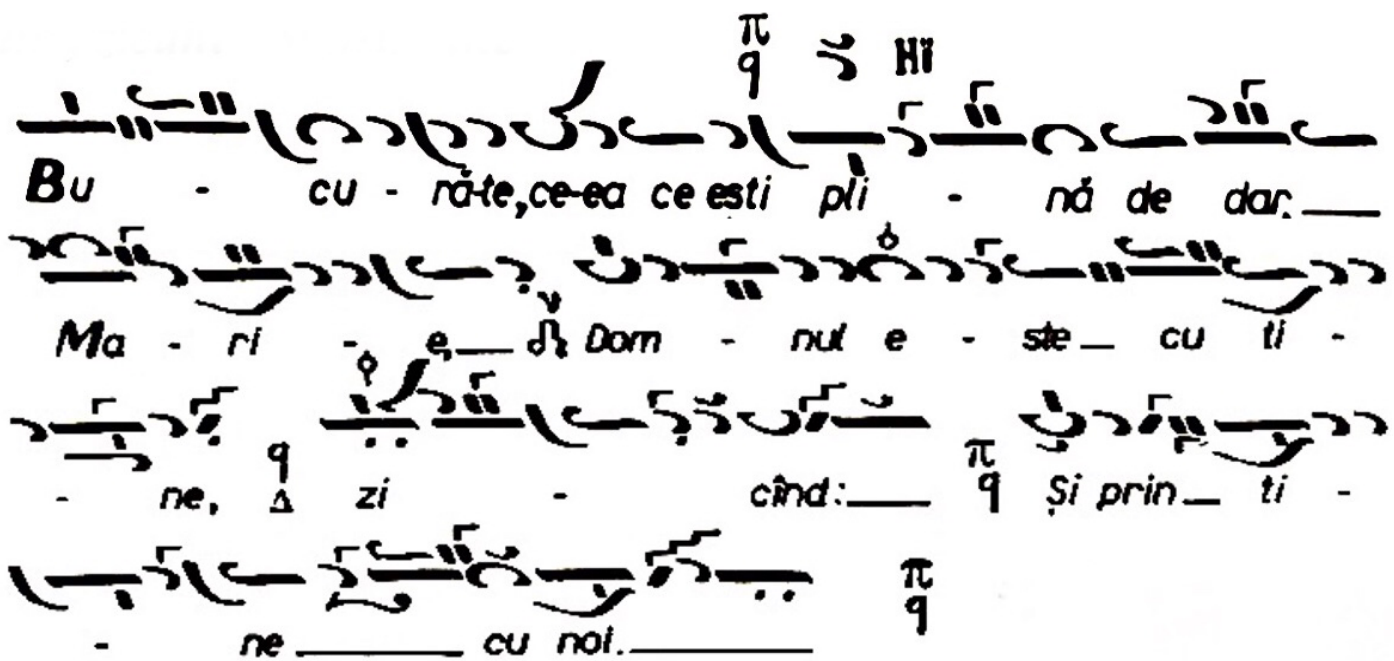 π q Hĭ
Bu - cu - ră-te, ce-ea ce esti pli - nă de dar.
Ma - ri - e, Dom - nul e - ste cu ti -
- ne, q Δ zi - cînd: π q Și prin ti -
- ne cu noi. π q